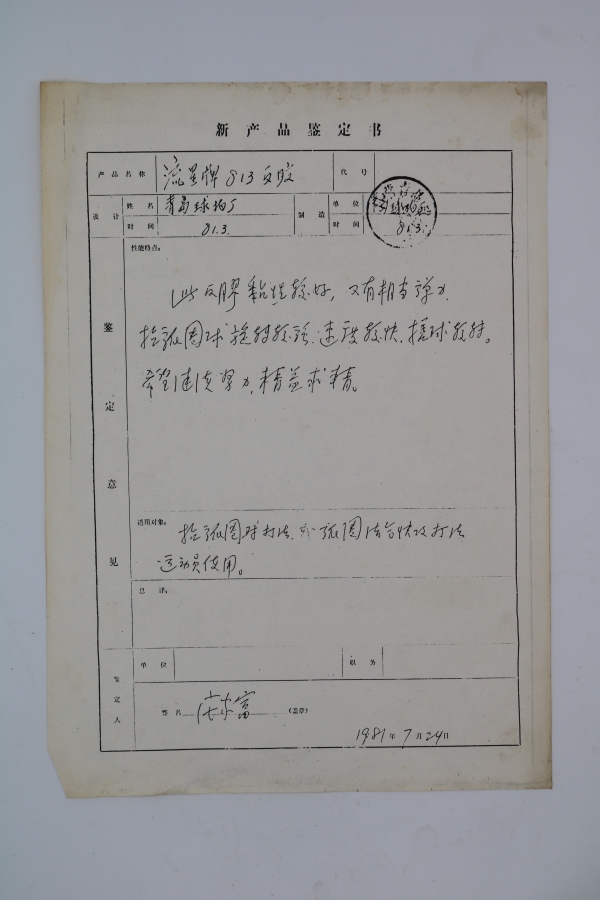 新产品鉴定书
产品名称 流星牌813反胶 代号
设计 姓名 青岛球拍厂 制造 单位
时间 81.3. 时间 81.3.
鉴定意见
性能特点：
此反胶黏性较好，又有相当弹力，
拉弧圈球旋转较强，速度较快，搓球较转。
希望继续努力，精益求精。
适用对象：拉弧圈球打法，弧圈结合快攻打法
运动员使用。
总评：
鉴定人 单位 职务
签名 富（盖章）
1981年7月24日